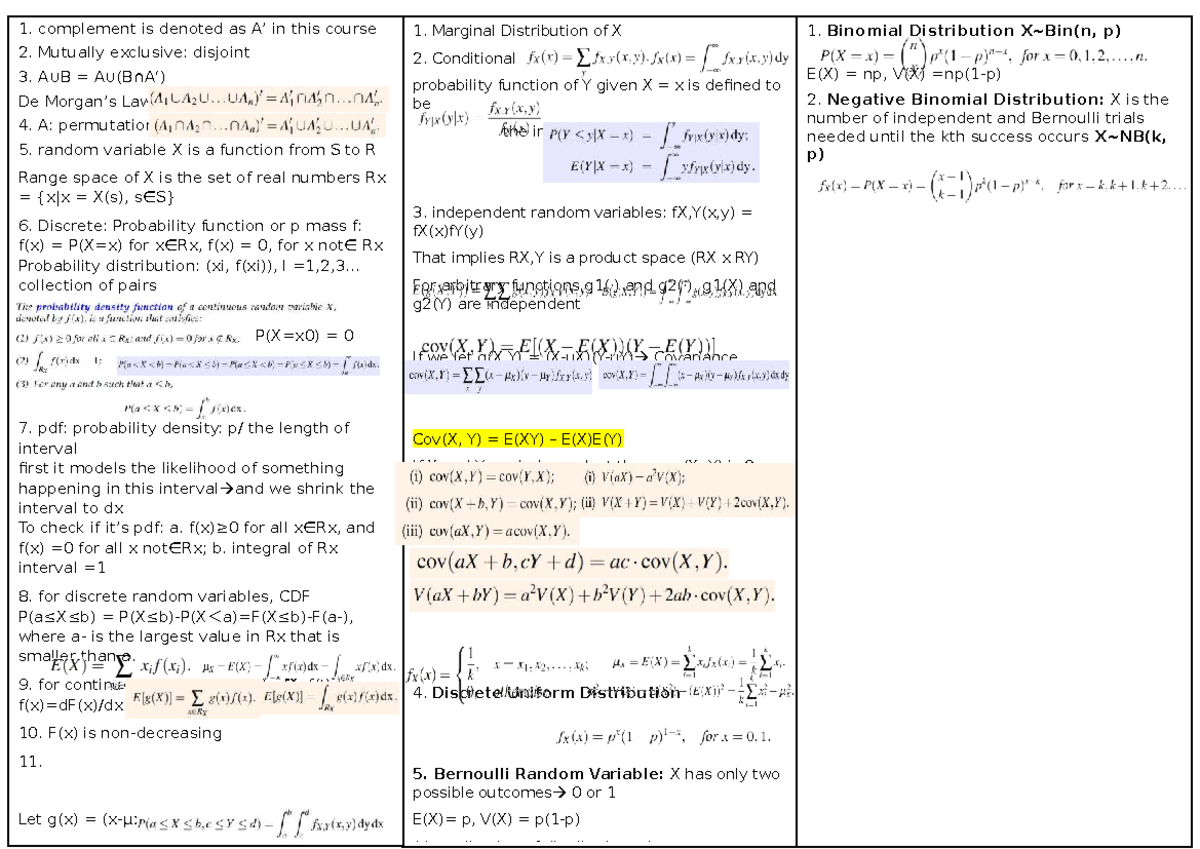 1. complement is denoted as A’ in this course
2. Mutually exclusive: disjoint
3. A∪B = A∪(B∩A’)
De Morgan’s Law (A₁∪A₂∪…∪Aₙ)′ = A₁′∩A₂′∩…∩Aₙ′.
4. A: permutation (A₁∩A₂∩…∩Aₙ)′ = A₁′∪A₂′∪…∪Aₙ′.
5. random variable X is a function from S to R
Range space of X is the set of real numbers Rx
= {x|x = X(s), s∈S}
6. Discrete: Probability function or p mass f:
f(x) = P(X=x) for x∈Rx, f(x) = 0, for x not∈ Rx
Probability distribution: (xi, f(xi)), I =1,2,3…
collection of pairs
The probability density function of a continuous random variable X,
denoted by f(x), is a function that satisfies:
(1) f(x) ≥ 0 for all x ∈ R_X; and f(x) = 0 for x ∉ R_X; P(X=x0) = 0
(2) ∫_{R_X} f(x)dx = 1; P(a<X<b) = P(a<X≤b) = P(a≤X<b) = P(a≤X≤b) = ∫_a^b f(x)dx.
(3) For any a and b such that a ≤ b,
P(a ≤ X ≤ b) = ∫_a^b f(x)dx.
7. pdf: probability density: p/ the length of
interval
first it models the likelihood of something
happening in this interval→and we shrink the
interval to dx
To check if it’s pdf: a. f(x)≥0 for all x∈Rx, and
f(x) =0 for all x not∈Rx; b. integral of Rx
interval =1
8. for discrete random variables, CDF
P(a≤X≤b) = P(X≤b)-P(X<a)=F(X≤b)-F(a-),
where a- is the largest value in Rx that is
smaller than a.
E(X) = ∑ x_i f(x_i). μ_X = E(X) = ∫_{-∞}^{∞} xf(x)dx = ∫ xf(x)dx.
9. for contin
E[g(X)] = ∑_{x∈R_X} g(x)f(x). E[g(X)] = ∫_{R_X} g(x)f(x)dx.
f(x)=dF(x)/dx
10. F(x) is non-decreasing
11.
Let g(x) = (x-μ: P(a ≤ X ≤ b, c ≤ Y ≤ d) = ∫_a^b ∫_c^d f_{X,Y}(x,y)dydx
1. Marginal Distribution of X
2. Conditional f_X(x) = ∑_y f_{X,Y}(x,y). f_X(x) = ∫_{-∞}^{∞} f_{X,Y}(x,y)dy
probability function of Y given X = x is defined to
be
f_{Y|X}(y|x) = f_{X,Y}(x,y) / f_X(x)
the in
P(Y ≤ y|X = x) = ∫_{-∞}^{y} f_{Y|X}(y|x)dy;
E(Y|X = x) = ∫_{-∞}^{∞} y f_{Y|X}(y|x)dy.
3. independent random variables: fX,Y(x,y) =
fX(x)fY(y)
That implies RX,Y is a product space (RX x RY)
For arbitrary functions g1(·) and g2(·), g1(X) and
g2(Y) are independent
cov(X,Y) = E[(X − E(X))(Y − E(Y))]
If we let g(X,Y) = (X-uX)(Y-rY)→ Covariance
cov(X,Y) = ∑_x ∑_y (x − μ_X)(y − μ_Y) f_{X,Y}(x,y) cov(X,Y) = ∫_{-∞}^{∞} ∫_{-∞}^{∞} (x − μ_X)(y − μ_Y) f_{X,Y}(x,y)dxdy
Cov(X, Y) = E(XY) – E(X)E(Y)
(i) cov(X,Y) = cov(Y,X); (i) V(aX) = a²V(X);
(ii) cov(X + b,Y) = cov(X,Y); (ii) V(X+Y) = V(X)+V(Y)+2cov(X,Y).
(iii) cov(aX,Y) = a cov(X,Y).
cov(aX + b, cY + d) = ac · cov(X,Y).
V(aX + bY) = a²V(X) + b²V(Y) + 2ab · cov(X,Y).
f_X(x) = { 1/k, x = x₁,x₂,…,x_k; μ_X = E(X) = ∑_{i=1}^{k} x_i f_X(x_i) = 1/k ∑_{i=1}^{k} x_i.
4. Discrete Uniform Distribution
(E(X))² = 1/k ∑ x_i² − μ_X².
f_X(x) = pˣ(1 − p)^{1−x}, for x = 0,1.
5. Bernoulli Random Variable: X has only two
possible outcomes→ 0 or 1
E(X)= p, V(X) = p(1-p)
1. Binomial Distribution X~Bin(n, p)
P(X = x) = (n x) pˣ(1 − p)^{n−x}, for x = 0,1,2,…,n.
E(X) = np, V(X) =np(1-p)
2. Negative Binomial Distribution: X is the
number of independent and Bernoulli trials
needed until the kth success occurs X~NB(k,
p)
f_X(x) = P(X = x) = (x−1 k−1) pᵏ(1 − p)^{x−k}, for x = k,k+1,k+2,…